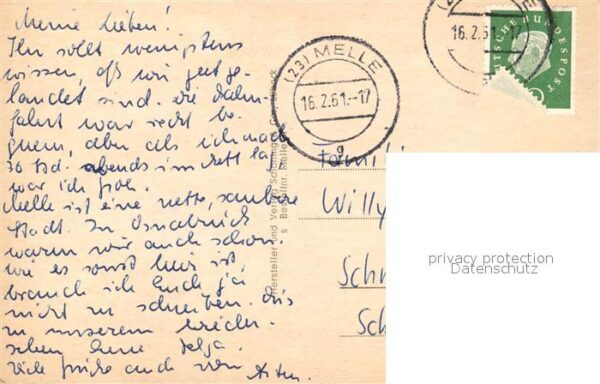 Meine Lieben!
Ihr sollt wenigstens
wissen, daß wir gut ge-
landet sind. Die Bahn-
fahrt war recht be-
quem, aber als ich nach
30 Std. abends im Bett lag,
war ich froh.
Melle ist eine nette, saubere
Stadt. In Osnabrück
waren wir auch schon.
wie es sonst hier ist,
brauch ich Euch ja
nicht zu schreiben. Bis
zu unserem wieder-
sehen Eure
Viele Grüße auch von
(23) MELLE
16.2.61.-17
g
16.2.61.-17
DEUTSCHE BUNDESPOST
Hersteller und Verlag Schöning
Bestellnr. Melle
Familie
Willy
Schr
Sch
privacy protection
Datenschutz